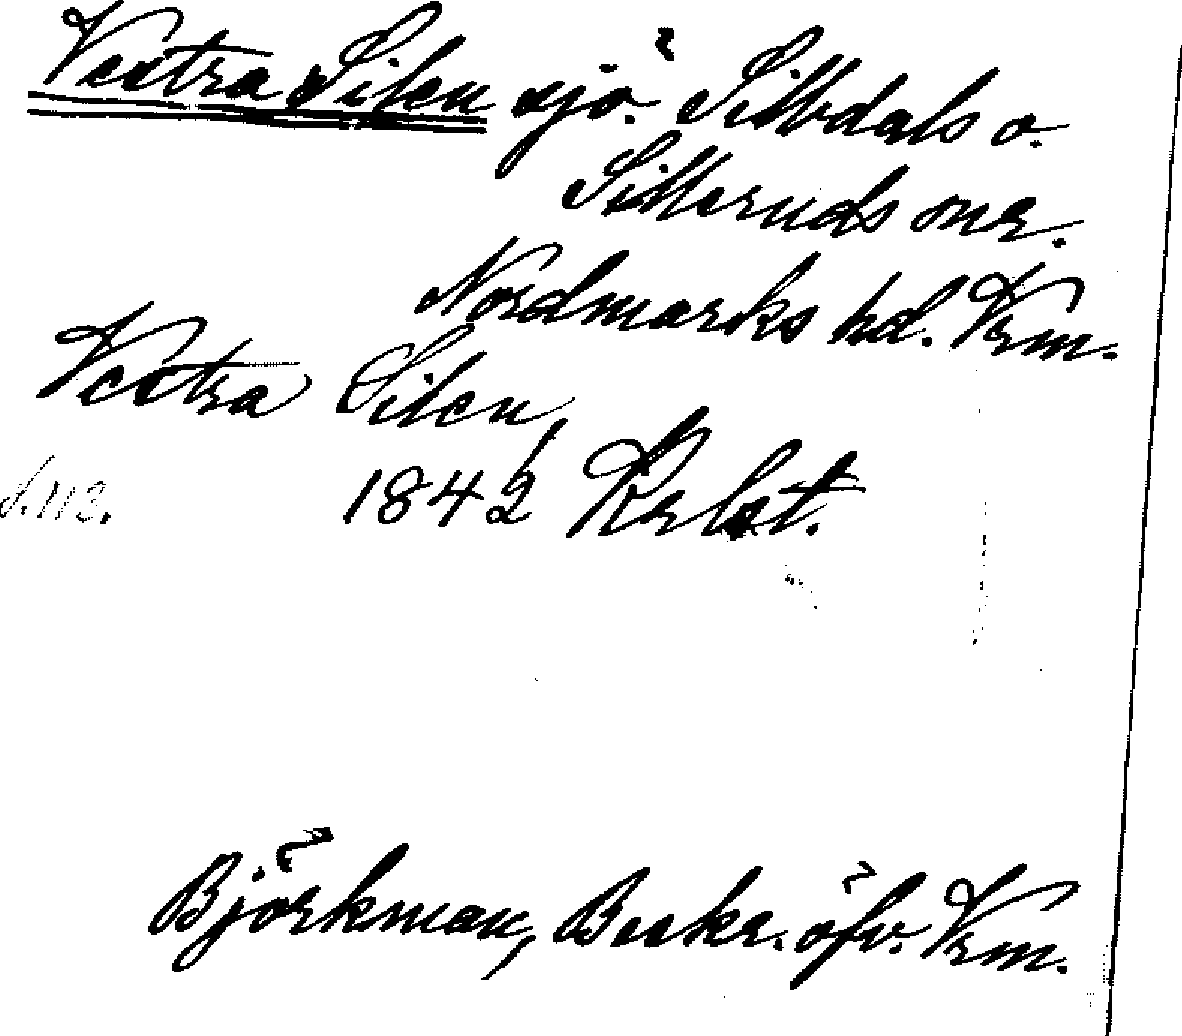 Vestra Silen sjö. Sillbdals o.
Silleruds snr.
Nordmarks hd. Vrm.
Vestra Silen,
s. 112. 1842 Krlst.
Björkman, Beskr. öfv. Vrm.